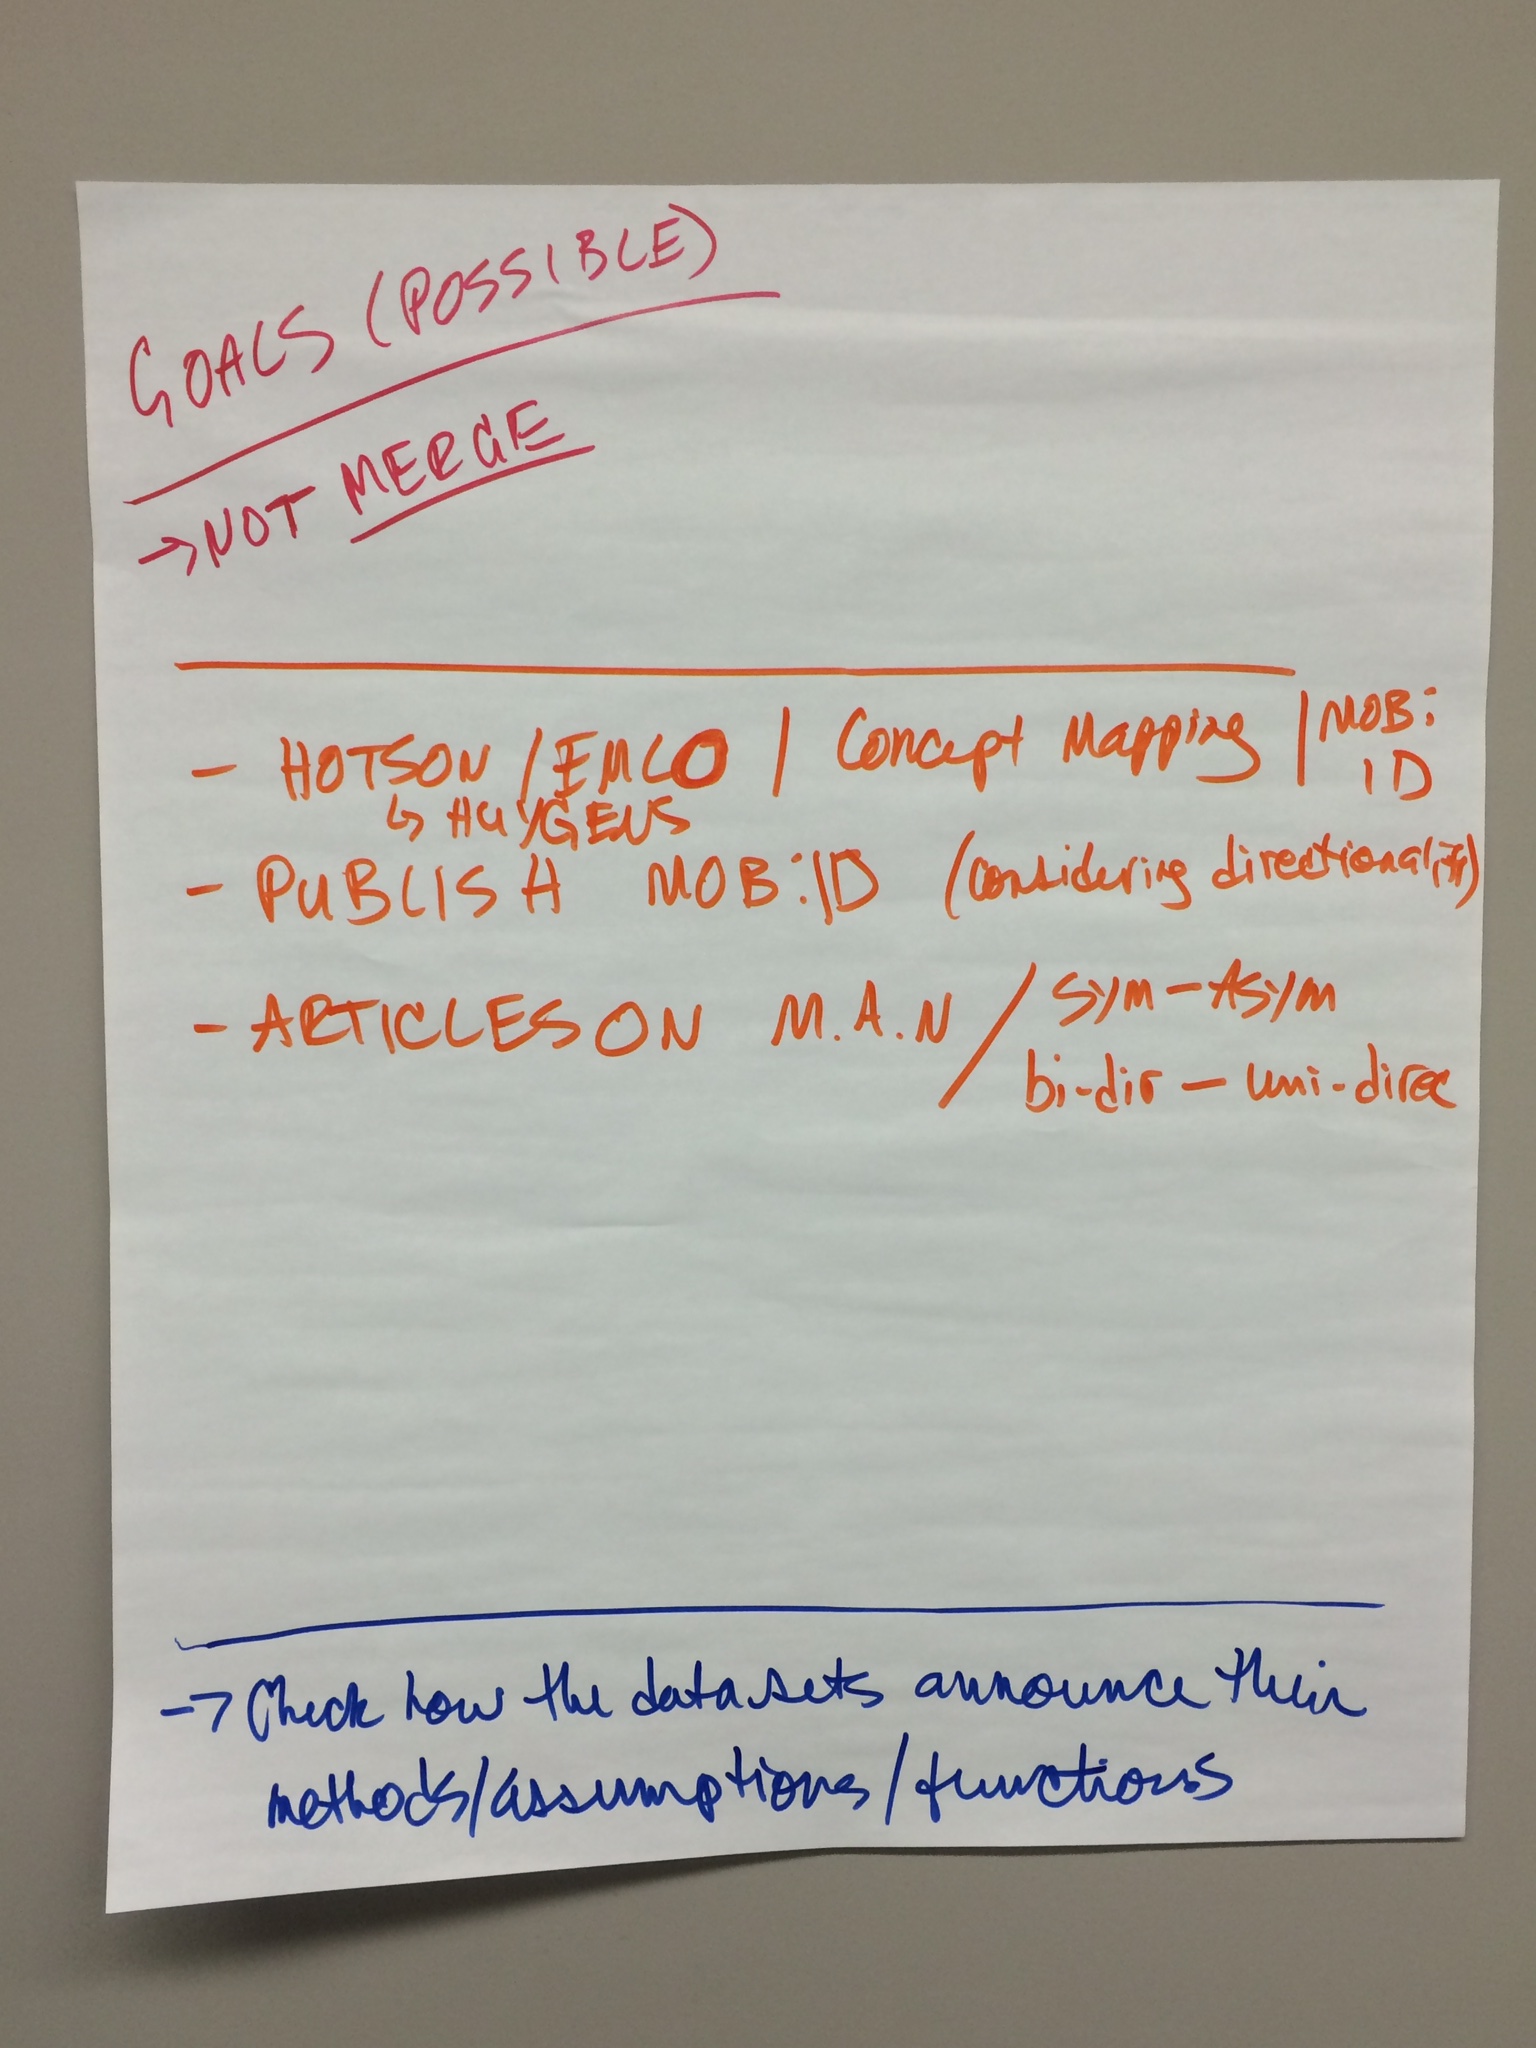 GOALS (POSSIBLE)
→ NOT MERGE
- HOTSON / EMLO / Concept Mapping / MOB:
ID
↳ HUYGENS
- PUBLISH MOB:ID (considering directionality)
- ARTICLES ON M.A.N / Sym - Asym
bi-dir - uni-direc
→ Check how the datasets announce their
methods/assumptions/functions